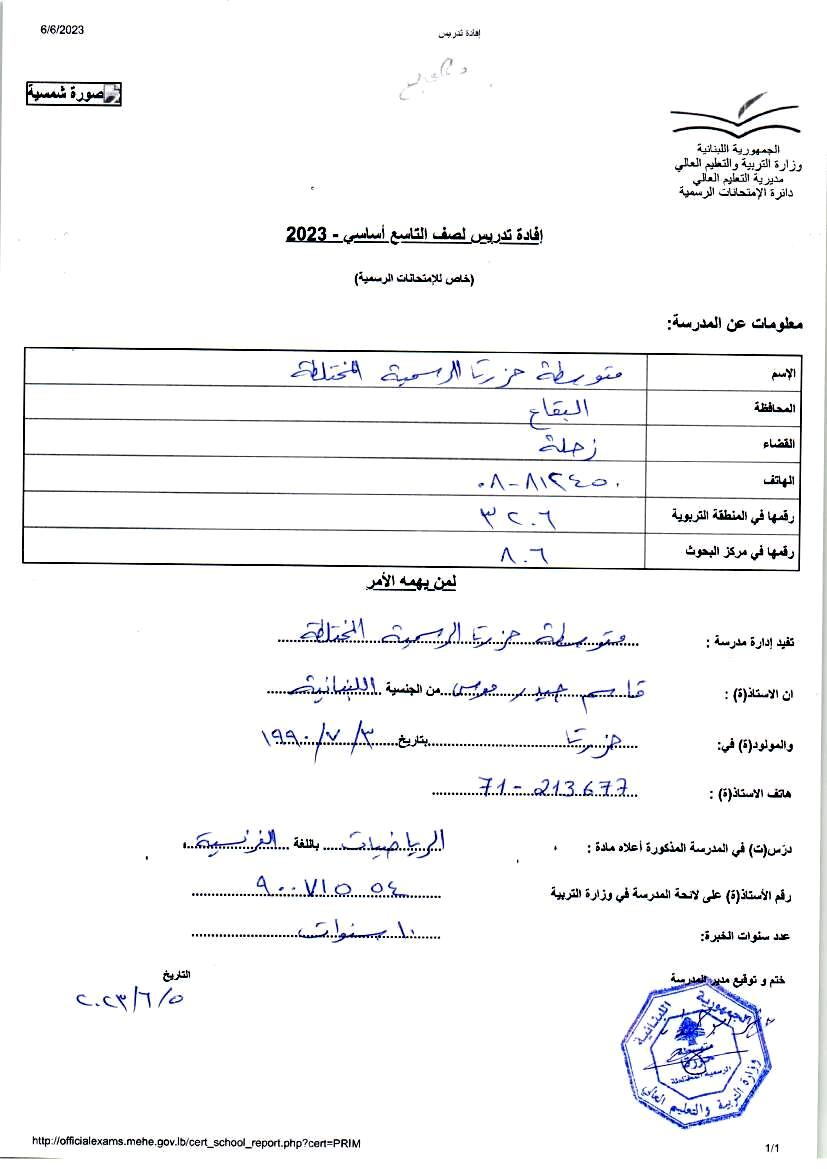 6/6/2023
إفادة تدريس
صورة شمسية
الجمهورية اللبنانية
وزارة التربية والتعليم العالي
مديرية التعليم العالي
دائرة الإمتحانات الرسمية
إفادة تدريس لصف التاسع أساسي - 2023
(خاص للإمتحانات الرسمية)
معلومات عن المدرسة:
الإسم متوسطة حزرتا الرسمية المختلطة
المحافظة البقاع
القضاء زحلة
الهاتف ٠٨-٨١٢٤٥٠
رقمها في المنطقة التربوية ٣٢٠٦
رقمها في مركز البحوث ٨٠٦
لمن يهمه الأمر
تفيد إدارة مدرسة : متوسطة حزرتا الرسمية المختلطة
ان الاستاذ(ة) : قاسم حيدر موسى من الجنسية اللبنانية
والمولود(ة) في: حزرتا بتاريخ ٣/٧/١٩٩٠
هاتف الاستاذ(ة) : 71-213677
درّس(ت) في المدرسة المذكورة أعلاه مادة : الرياضيات باللغة الفرنسية
رقم الأستاذ(ة) على لائحة المدرسة في وزارة التربية ٩٠٠٧١٥٥٤
عدد سنوات الخبرة: ١٠ سنوات
ختم و توقيع مدير المدرسة
التاريخ
٢٠٢٣/٦/٥
الجمهورية اللبنانية
متوسطة
حزرتا
الرسمية المختلطة
وزارة التربية والتعليم العالي
http://officialexams.mehe.gov.lb/cert_school_report.php?cert=PRIM
1/1